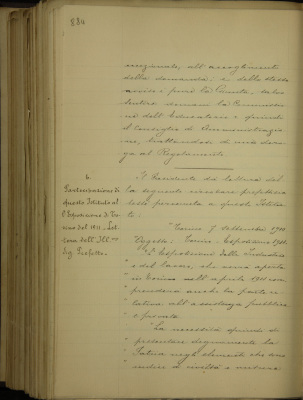 884
eccezionale, all'accoglimento
della domanda; e dello stesso
avviso è pure la Giunta, salvo
sentire domani la Commissione
dell'Educatorio e quindi
il Consiglio di Amministrazione,
trattandosi di una deroga
al Regolamento.
6.
Partecipazione di
questo Istituto all'
Esposizione di Torino
del 1911 - Lettera
dell'Ill.mo
Sig. Prefetto.
Il Presidente dà lettura della
seguente circolare prefettizia
testè pervenuta a questo Istituto:
"Torino 7 settembre 1910
"Oggetto: Torino - Esposizione 1911.
"L'Esposizione delle industrie
"e del lavoro, che verrà aperta
"in Torino nell'aprile 1911 comprenderà
"anche la parte relativa
"all'assistenza pubblica
"e privata.
"La necessità quindi di
"presentare degnamente la
"Patria negli elementi che sono
"indice di civiltà e